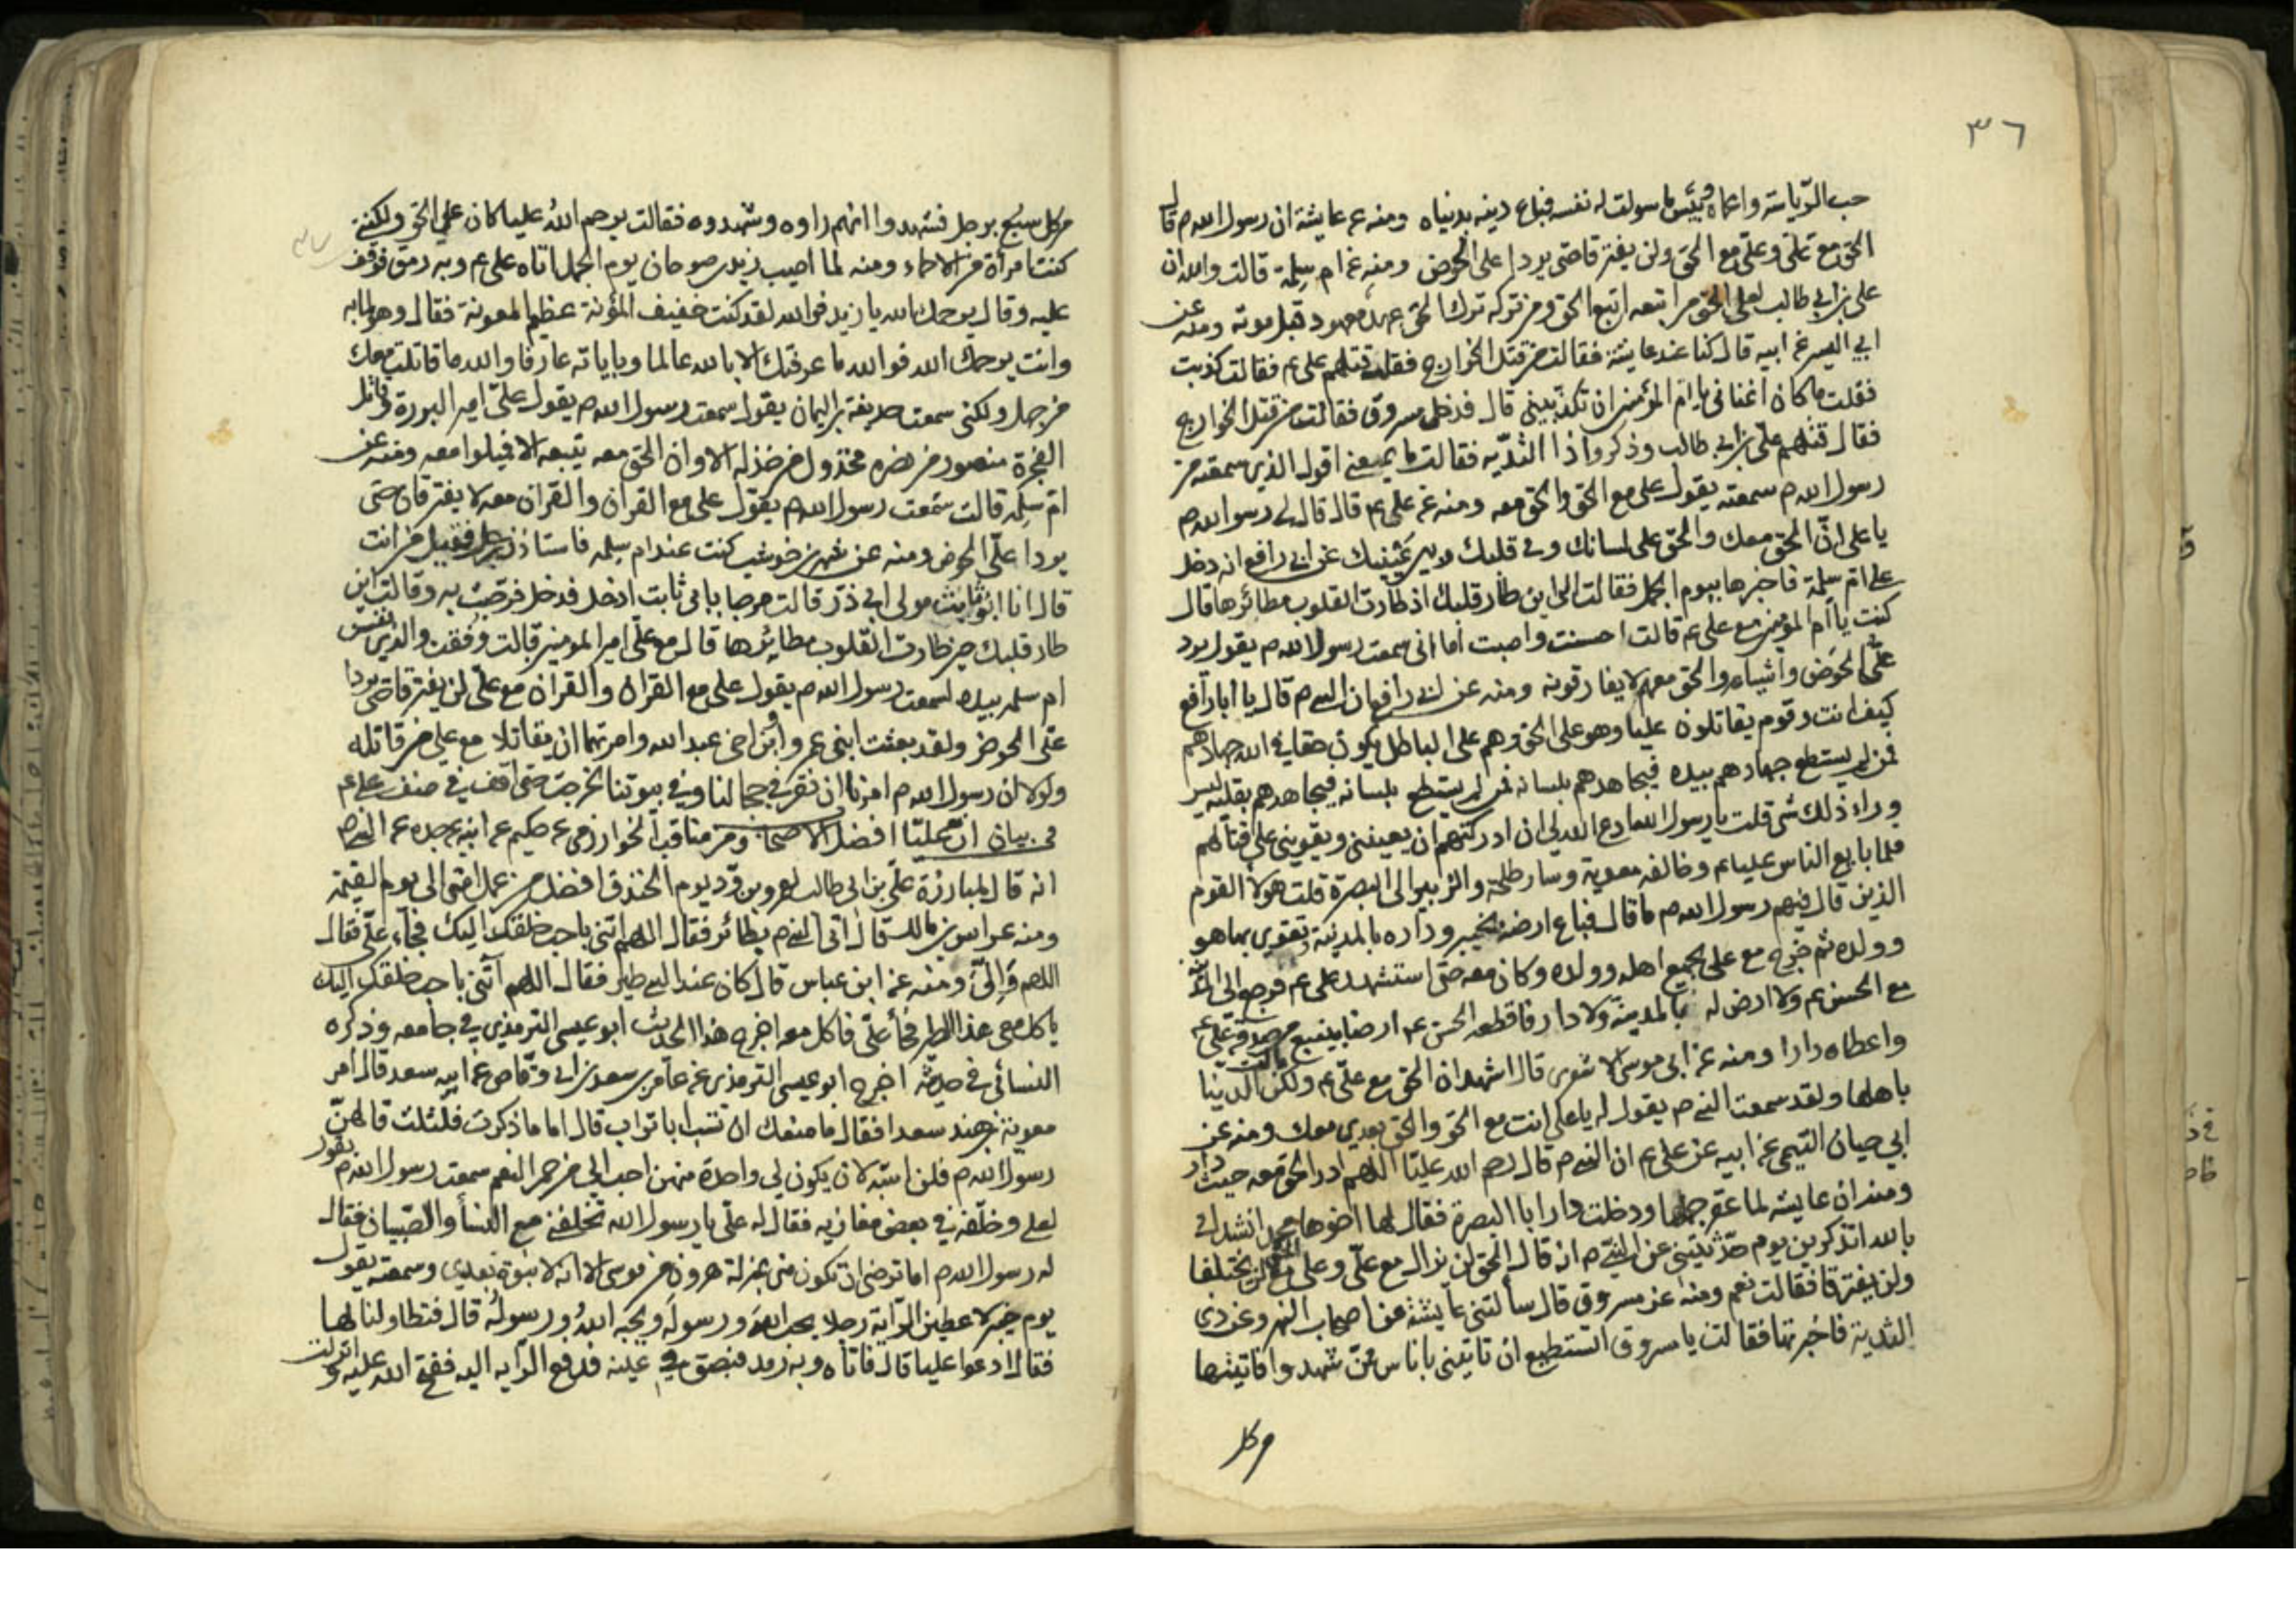 ٣٦
حب الرياسة واعماه وبئس ما سولت له نفسه فباع دينه بدنياه ومنه عن عايشة ان رسول الله ص قال
الحق مع علي وعلي مع الحق ولن يفترقا حتى يردا على الحوض ومنه عن ام سلمة قالت والله ان
علي بن ابي طالب لعلى الحق من اتبعه اتبع الحق ومن تركه ترك الحق عهد معهود قبل موته ومنه عن
ابي اليسر عن ابيه قال كنا عند عايشة فقالت من قتل الخوارج فقلت قتلهم علي ع م فقالت كذبت
فقلت ما كان اغنانى يا ام المؤمنين ان تكذبيني قال فدخل مسروق فقالت من قتل الخوارج
فقال قتلهم علي بن ابي طالب وذكروا ذا الثديه فقالت ما يمنعني اقول الذي سمعته من
رسول الله ص سمعته يقول علي مع الحق والحق معه ومنه عن علي ع م قال قال لي رسول الله ص
يا علي ان الحق معك والحق على لسانك وفي قلبك وبين عينيك عن ابي رافع انه دخل
على ام سلمة فاخبرها بيوم الجمل فقالت الى اين طار قلبك اذ طارت القلوب مطائرها قال
كنت يا ام المؤمنين مع علي ع م قالت احسنت واصبت اما اني سمعت رسول الله ص يقول يرد
علي الحوض واشياعه والحق معهم لا يفارقونه ومنه عن ابي رافع ان النبي ص قال يا ابا رافع
كيف انت وقوم يقاتلون عليا وهو على الحق وهم على الباطل يكون حقا في الله جهادهم
فمن لم يستطع جهادهم بيده فيجاهدهم بلسانه فمن لم يستطع بلسانه فيجاهدهم بقلبه ليس
وراء ذلك شي قلت يا رسول الله ادع الله لي ان ادركتهم ان يعينني ويقويني على قتالهم
فلما بايع الناس عليا ع م وخالفه معوية وسار طلحة والزبير الى البصرة قلت هولا القوم
الذين قال فيهم رسول الله ص ما قال فباع ارضه بخيبر وداره بالمدينة وتقوى بها هو
وولده ثم خرج مع علي بجميع اهله وولده وكان معه حتى استشهد علي ع م فرجع الى المدينة
مع الحسن ع م ولا ارض له بالمدينة ولا دار فاقطعه الحسن ع م ارضا بينبع من صدقة علي ع م
واعطاه دارا ومنه عن ابي موسى الاشعرى قال اشهد ان الحق مع علي ع م ولكن مالت الدنيا
باهلها ولقد سمعت النبي ص يقول له يا علي انت مع الحق والحق بعدي معك ومنه عن
ابي حيان التيمي عن ابيه عن علي ع م ان النبي ص قال رحم الله عليا اللهم ادر الحق معه حيث دار
ومنه ان عايشه لما عقر جملها ودخلت دارا بالبصرة فقال لها اخوها محمد انشدك
بالله اتذكرين يوم حدثتيني عن النبي ص انه قال الحق لن يزال مع علي وعلي مع الحق لن يختلفا
ولن يفترقا فقالت نعم ومنه عن مسروق قال سألتني عايشة عن اصحاب النهر وعن ذى
الثدية فاخبرتها فقالت يا مسروق اتستطيع ان تاتيني باناس ممن شهد وافاتيتها
من كل
من كل سبع برجل فشهدوا انهم راوه وشهدوه فقالت يرحم الله عليا كان على الحق ولكني
كنت امرأة من الاحماء ومنه لما اصيب زيد بن صوحان يوم الجمل اتاه علي ع م وبه رمق فوقف
عليه وقال يرحمك الله يا زيد فوالله لقد كنت خفيف المؤنة عظيم المعونة فقال وهو لما به
وانت يرحمك الله فوالله ما عرفتك الا بالله عالما وباياته عارفا والله ما قاتلت معك
من جهل ولكني سمعت حذيفة بن اليمان يقول سمعت رسول الله ص يقول علي امير البررة وقاتل
الفجرة منصور من نصره مخذول من خذله الا وان الحق معه يتبعه الا فميلوا معه ومنه عن
ام سلمه قالت سمعت رسول الله ص يقول علي مع القران والقران معه لا يفترقان حتى
يردا علي الحوض ومنه عن شهر بن حوشب كنت عند ام سلمه فاستاذن رجل فقيل من انت
قال انا ابو ثابت مولى ابي ذر قالت مرحبا بابي ثابت ادخل فدخل فرحبت به وقالت اين
طار قلبك حين طارت القلوب مطايرها قال مع علي امير المومنين قالت وفقت والذي نفس
ام سلمه بيده لسمعت رسول الله ص يقول علي مع القران والقران مع علي لن يفترقا حتى يردا
علي الحوض ولقد بعثت ابني عمر وابن اخي عبد الله وامرتهما ان يقاتلا مع علي من قاتله
ولولا ان رسول الله ص امرنا ان نقر في حجالنا وفي بيوتنا لخرجت حتى اقف في صف علي ع م
في بيان ان عليا افضل الاصحاب ومن مناقب الخوارزمي عن حكيم عن ابيه عن جده عن النبي ص
انه قال لمبارزة علي بن ابي طالب لعمرو بن ود يوم الخندق افضل من عمل امتي الى يوم القيمة
ومنه عن انس بن مالك قال اتي النبي ص بطائر فقال اللهم ائتني باحب خلقك اليك فجاء علي فقال
اللهم والي ومنه عن ابن عباس قال كان عند النبي طير فقال اللهم آتني باحب خلقك اليك
ياكل معي هذا الطير فجأ علي فاكل معه اخرج هذا الحديث ابو عيسى الترمذي في جامعه وذكره
النسائي في حديثه اخرج ابو عيسى الترمذي عن عامر بن سعد بن ابي وقاص عن ابيه سعد قال امر
معوية بن هند سعدا فقال ما منعك ان تسب ابا تراب قال اما ما ذكرت فلثلث قالهن
رسول الله ص فلن اسبه لان يكون لي واحدة منهن احب الي من حمر النعم سمعت رسول الله ص يقول
لعلي وخلفه في بعض مغازيه فقال له علي يا رسول الله تخلفني مع النسأ والصبيان فقال
له رسول الله ص اما ترضى ان تكون مني بمنزلة هرون من موسى الا انه لا نبوة بعدي وسمعته يقول
يوم خيبر لاعطين الراية رجلا يحب الله ورسوله ويحبه الله ورسوله قال فتطاولنا لها
فقال ادعوا عليا قال فاتاه وبه رمد فبصق في عينه فدفع الرايه اليه ففتح الله عليه وانزلت